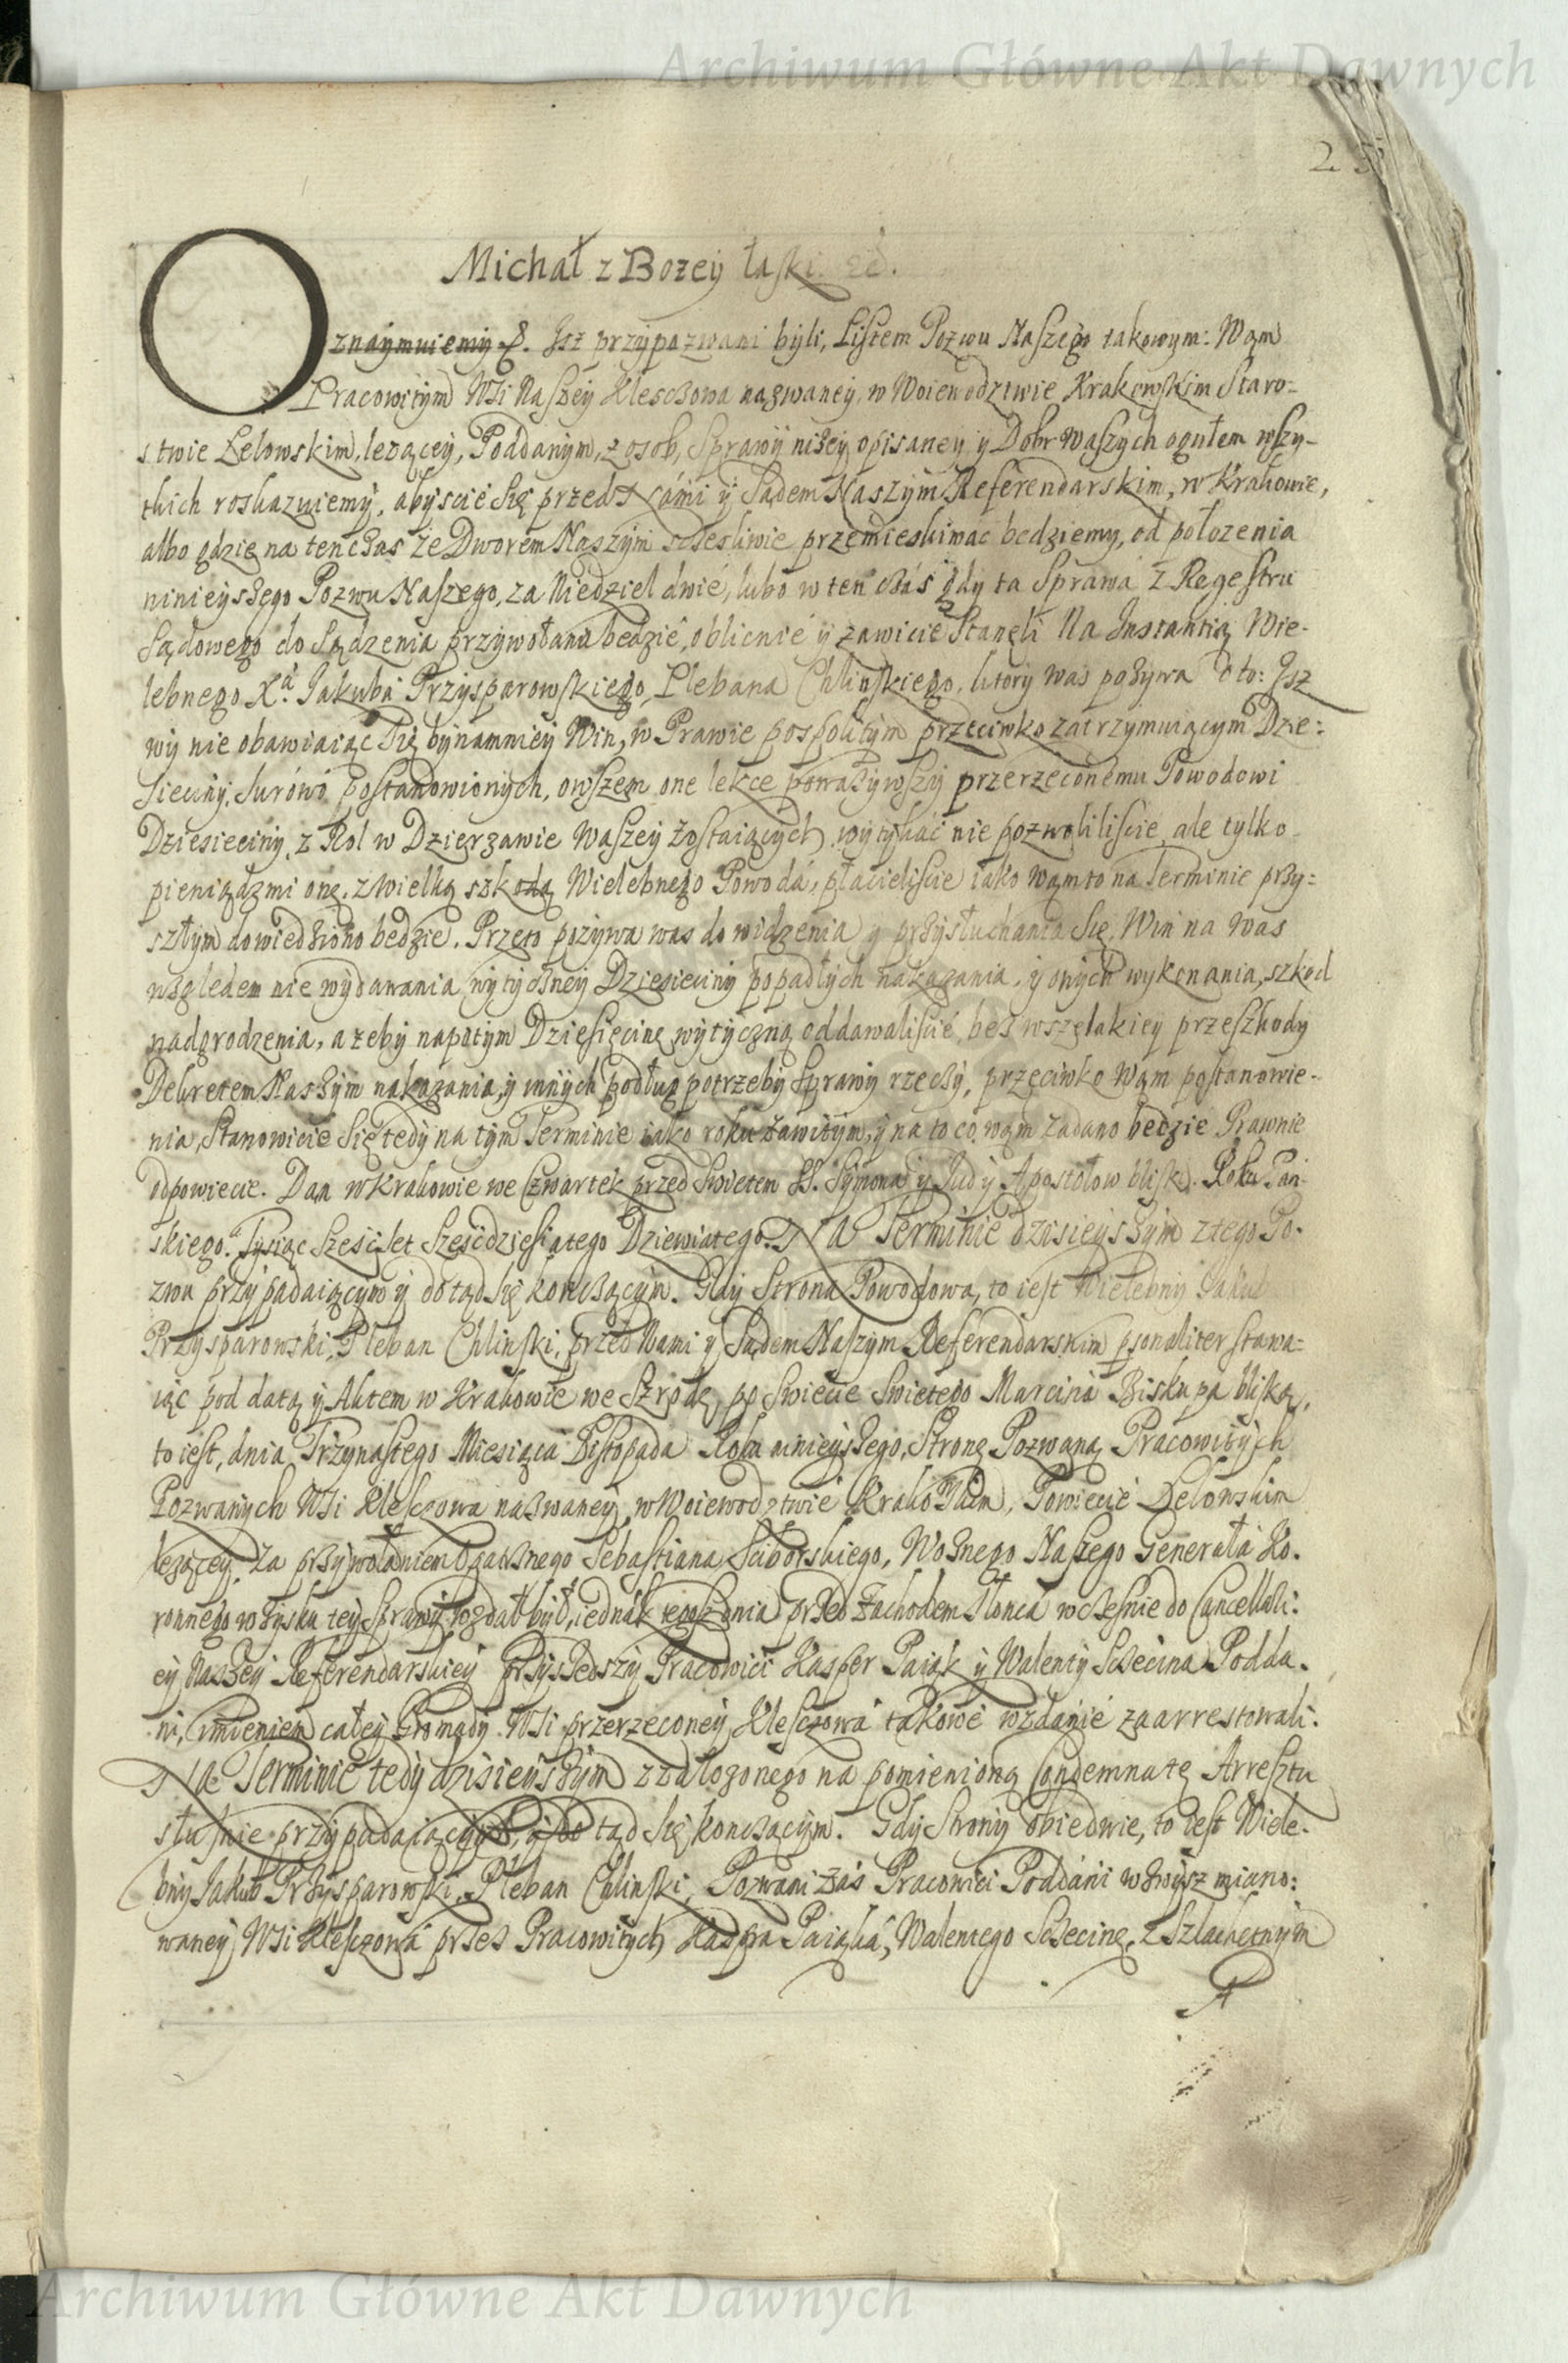 Archiwum Główne Akt Dawnych
Michał z Bozey łaski
Oznaymuiemy &. Isz przypozwani byli, Listem Pozwu Naszego takowym: Wam
Pracowitym Wsi Naszey Klesczowa nazwaney, w Woiewodztwie Krakowskim Staro-
stwie Lelowskim, lezącey, Poddanym, z osob, Sprawy nizey opisaney y Dobr waszych ogułem wszy-
tkich roskazuiemy, abyscie się przed Nami y Sądem Naszym Referendarskim, w Krakowie,
albo gdzie na tenczas ze Dworem Naszym sczesliwie przemieskiwac bedziemy, od połozenia
ninieyszego Pozwu Naszego, za Niedziel dwie, lubo w ten czas gdy ta Sprawa z Regestru
Sądowego do Sądzenia przywołana bedzie, oblicnie y zawicie Stanęli Na Instantią Wie-
lebnego Xa. Jakuba Przysparowskiego, Plebana Chlinskiego, ktory was pozywa o to: Isz
wy nie obawiaiąc się bynamniey Win, w Prawie pospolitym przeciwko zatrzymuiącym Dzie:
sieciny, surowo postanowionych, owszem one lekce powazywszy przerzeconemu Powodowi
Dziesieciny, z Rol w Dzierzawie Waszey zostaiących, wytykać nie pozwoliliscie, ale tylko
pieniądzmi onę, z wielką szkodą Wielebnego Powoda, płacieliscie iako wam to na Terminie przy:
szłym dowiedziono bedzie. Przeto pozywa was do widzenia y przysłuchania się, Win na was
wzgledem nie wydawania wytyczney Dziesieciny popadłych nakazania, y onych wykonania, szkod
nadgrodzenia, a zeby napotym Dziesięcinę wytyczną oddawaliscie, bez wszelakiey przeszkody
Dekretem Naszym nakazania, y innych podług potrzeby Sprawy rzeczy, przeciwko Wam postanowie-
nia, Stanowicie się tedy na tym Terminie iako roku zawitym, y na to co wam zadano bedzie Prawnie
odpowiecie. Dan w Krakowie we Czwartek przed Swietem SS. Symona y Judy Apostołow blisk. Roku Pan-
skiego. Tysiąc Szescset Szescdziesiątego Dziewiatego. Na Terminie dzisieyszym z tego Po-
zwu przypadaiącym y dotąd się konczącym. Gdy Strona Powodowa, to iest Wielebny Jakub
Przysparowski, Pleban Chlinski, przed Nami y Sądem Naszym Referendarskim psonaliter stawa-
iąc pod datą y Aktem w Krakowie we Szrodę, po Swiecie Swietego Marcina Biskupa bliską,
to iest, dnia Trzynastego Miesiąca Listopada Roku ninieyszego, Stronę Pozwaną Pracowitych
Pozwanych Wsi Klesczowa nazwaney, w Woiewodztwie Krakowskim, Powiecie Lelowskim
lezącey, za przywołaniem Opatrznego Sebastiana Sciborskiego, Woznego Naszego Generała Ko-
ronnego w zysku tey Sprawy wzdał był, iednak tegosz dnia przed Zachodem Słonca wczesnie do Cancellari-
ey Naszey Referendarskiey przyszedszy Pracowici Kasper Paiąk y Walenty Sczecina Podda-
ni, imieniem całey Gromady Wsi przerzeconey Klesczowa takowe wzdanie zaarrestowali.
Na Terminie tedy dzisieyszym z załozonego na pomienioną Condemnatę Arresztu
słusznie przypadaiącym, y do tąd się konczącym. Gdy Strony obiedwie, to iest Wiele-
bny Jakub Przysparowski, Pleban Chlinski, Pozwani zas Pracowici Poddani wzwysz miano:
waney Wsi Klesczowa przez Pracowitych Kaspra Paiąka, Walentego Sczecinę, z Szlachetnym
A
Archiwum Główne Akt Dawnych